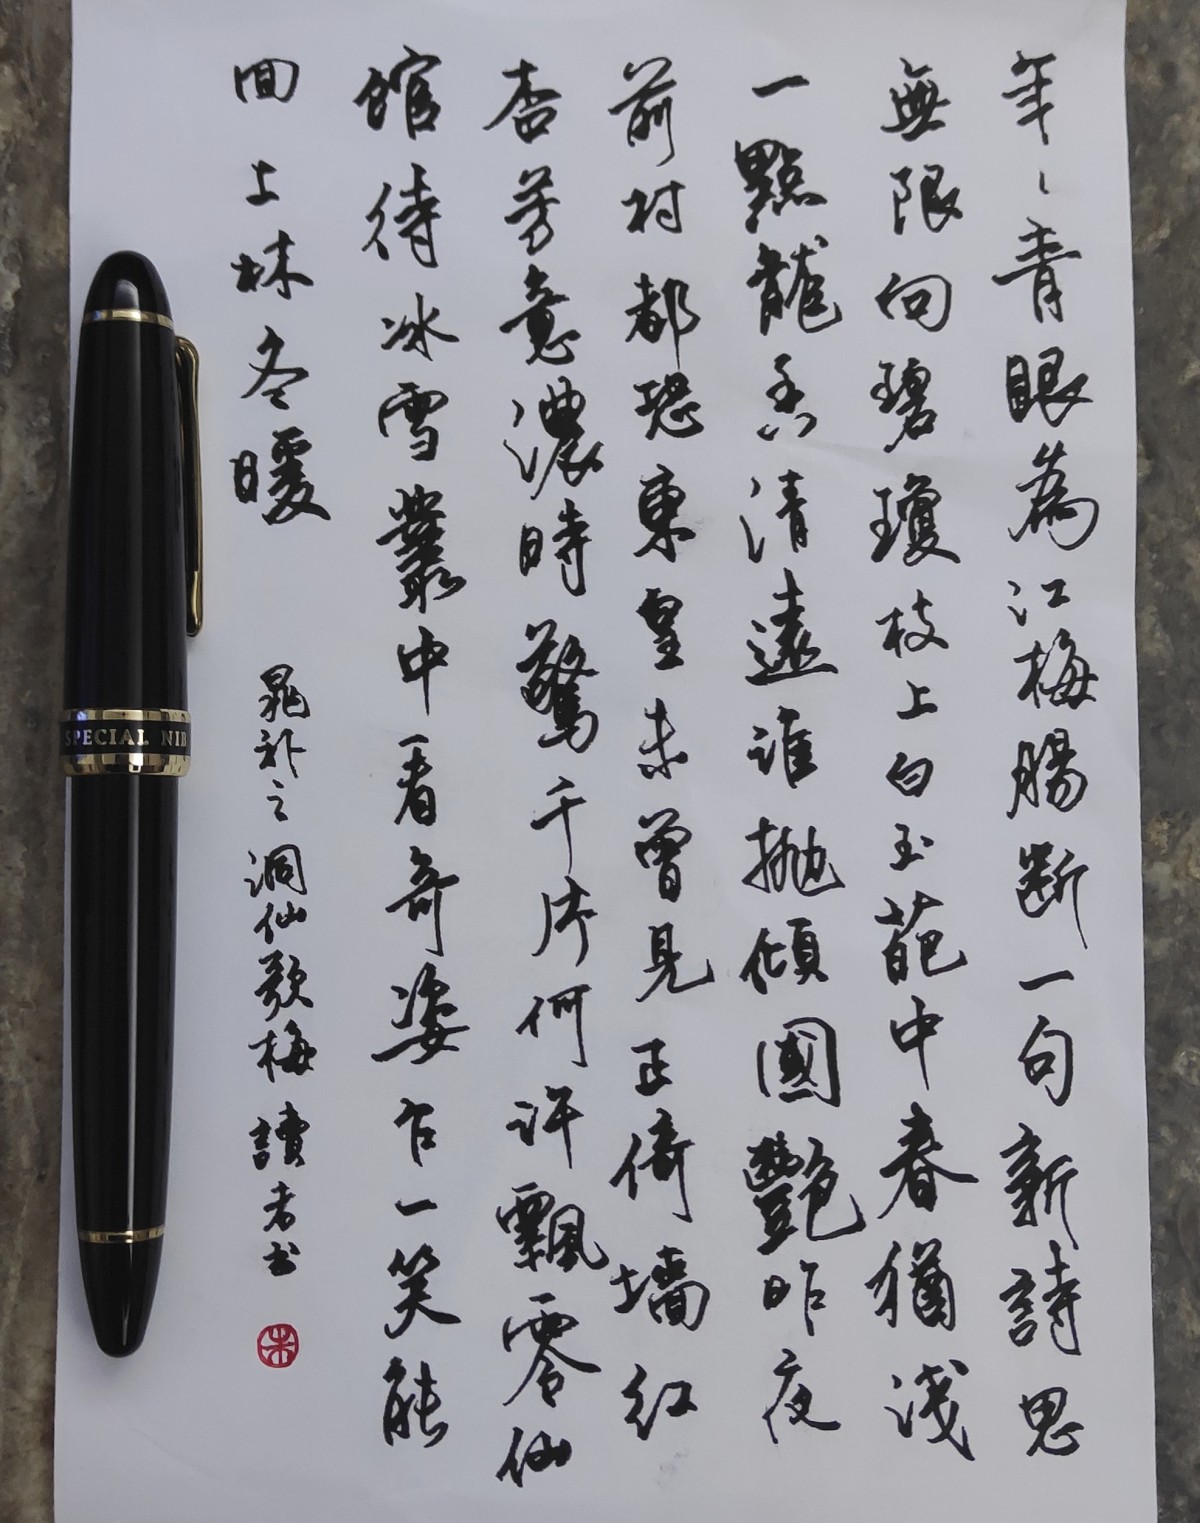 年々青眼為江梅腸斷一句新詩思
無限向碧瓊枝上白玉葩中春猶淺
一點龍香清遠誰拋傾國艷昨夜
前村都恐東皇未曾見正倚墻紅
杏芳意濃時驚千片何許飄零仙
館待冰雪叢中看奇姿乍一笑能
回上林冬暖
晁補之洞仙歌梅讀者書
SPECIAL NIB